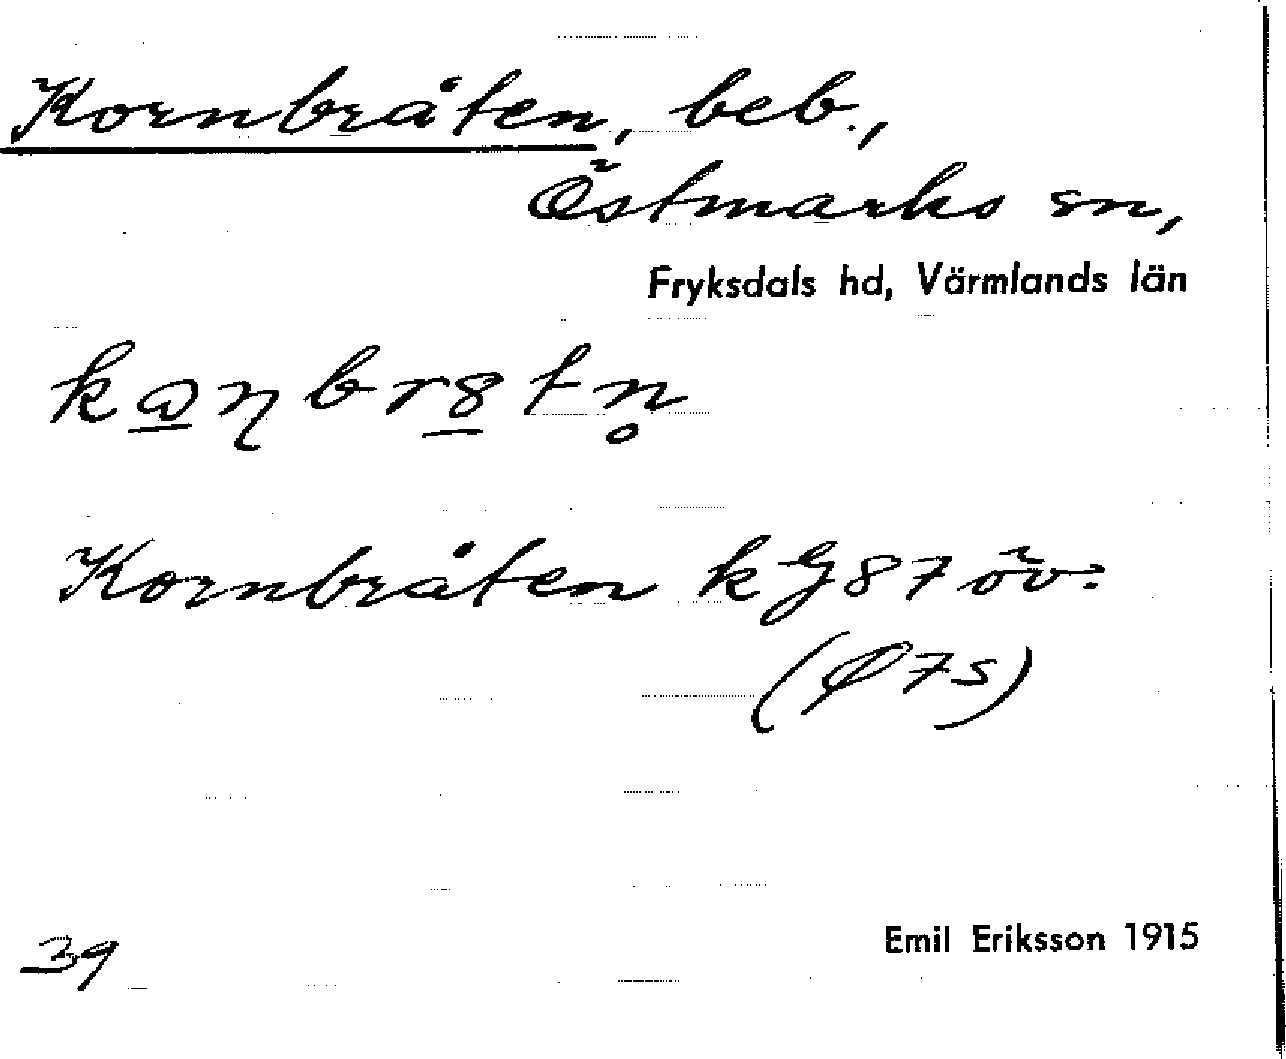 Kornbråten, beb.,
Östmarks sn,
Fryksdals hd, Värmlands län
Kornbråten kG87öv.
(Ø7s)
39
Emil Eriksson 1915